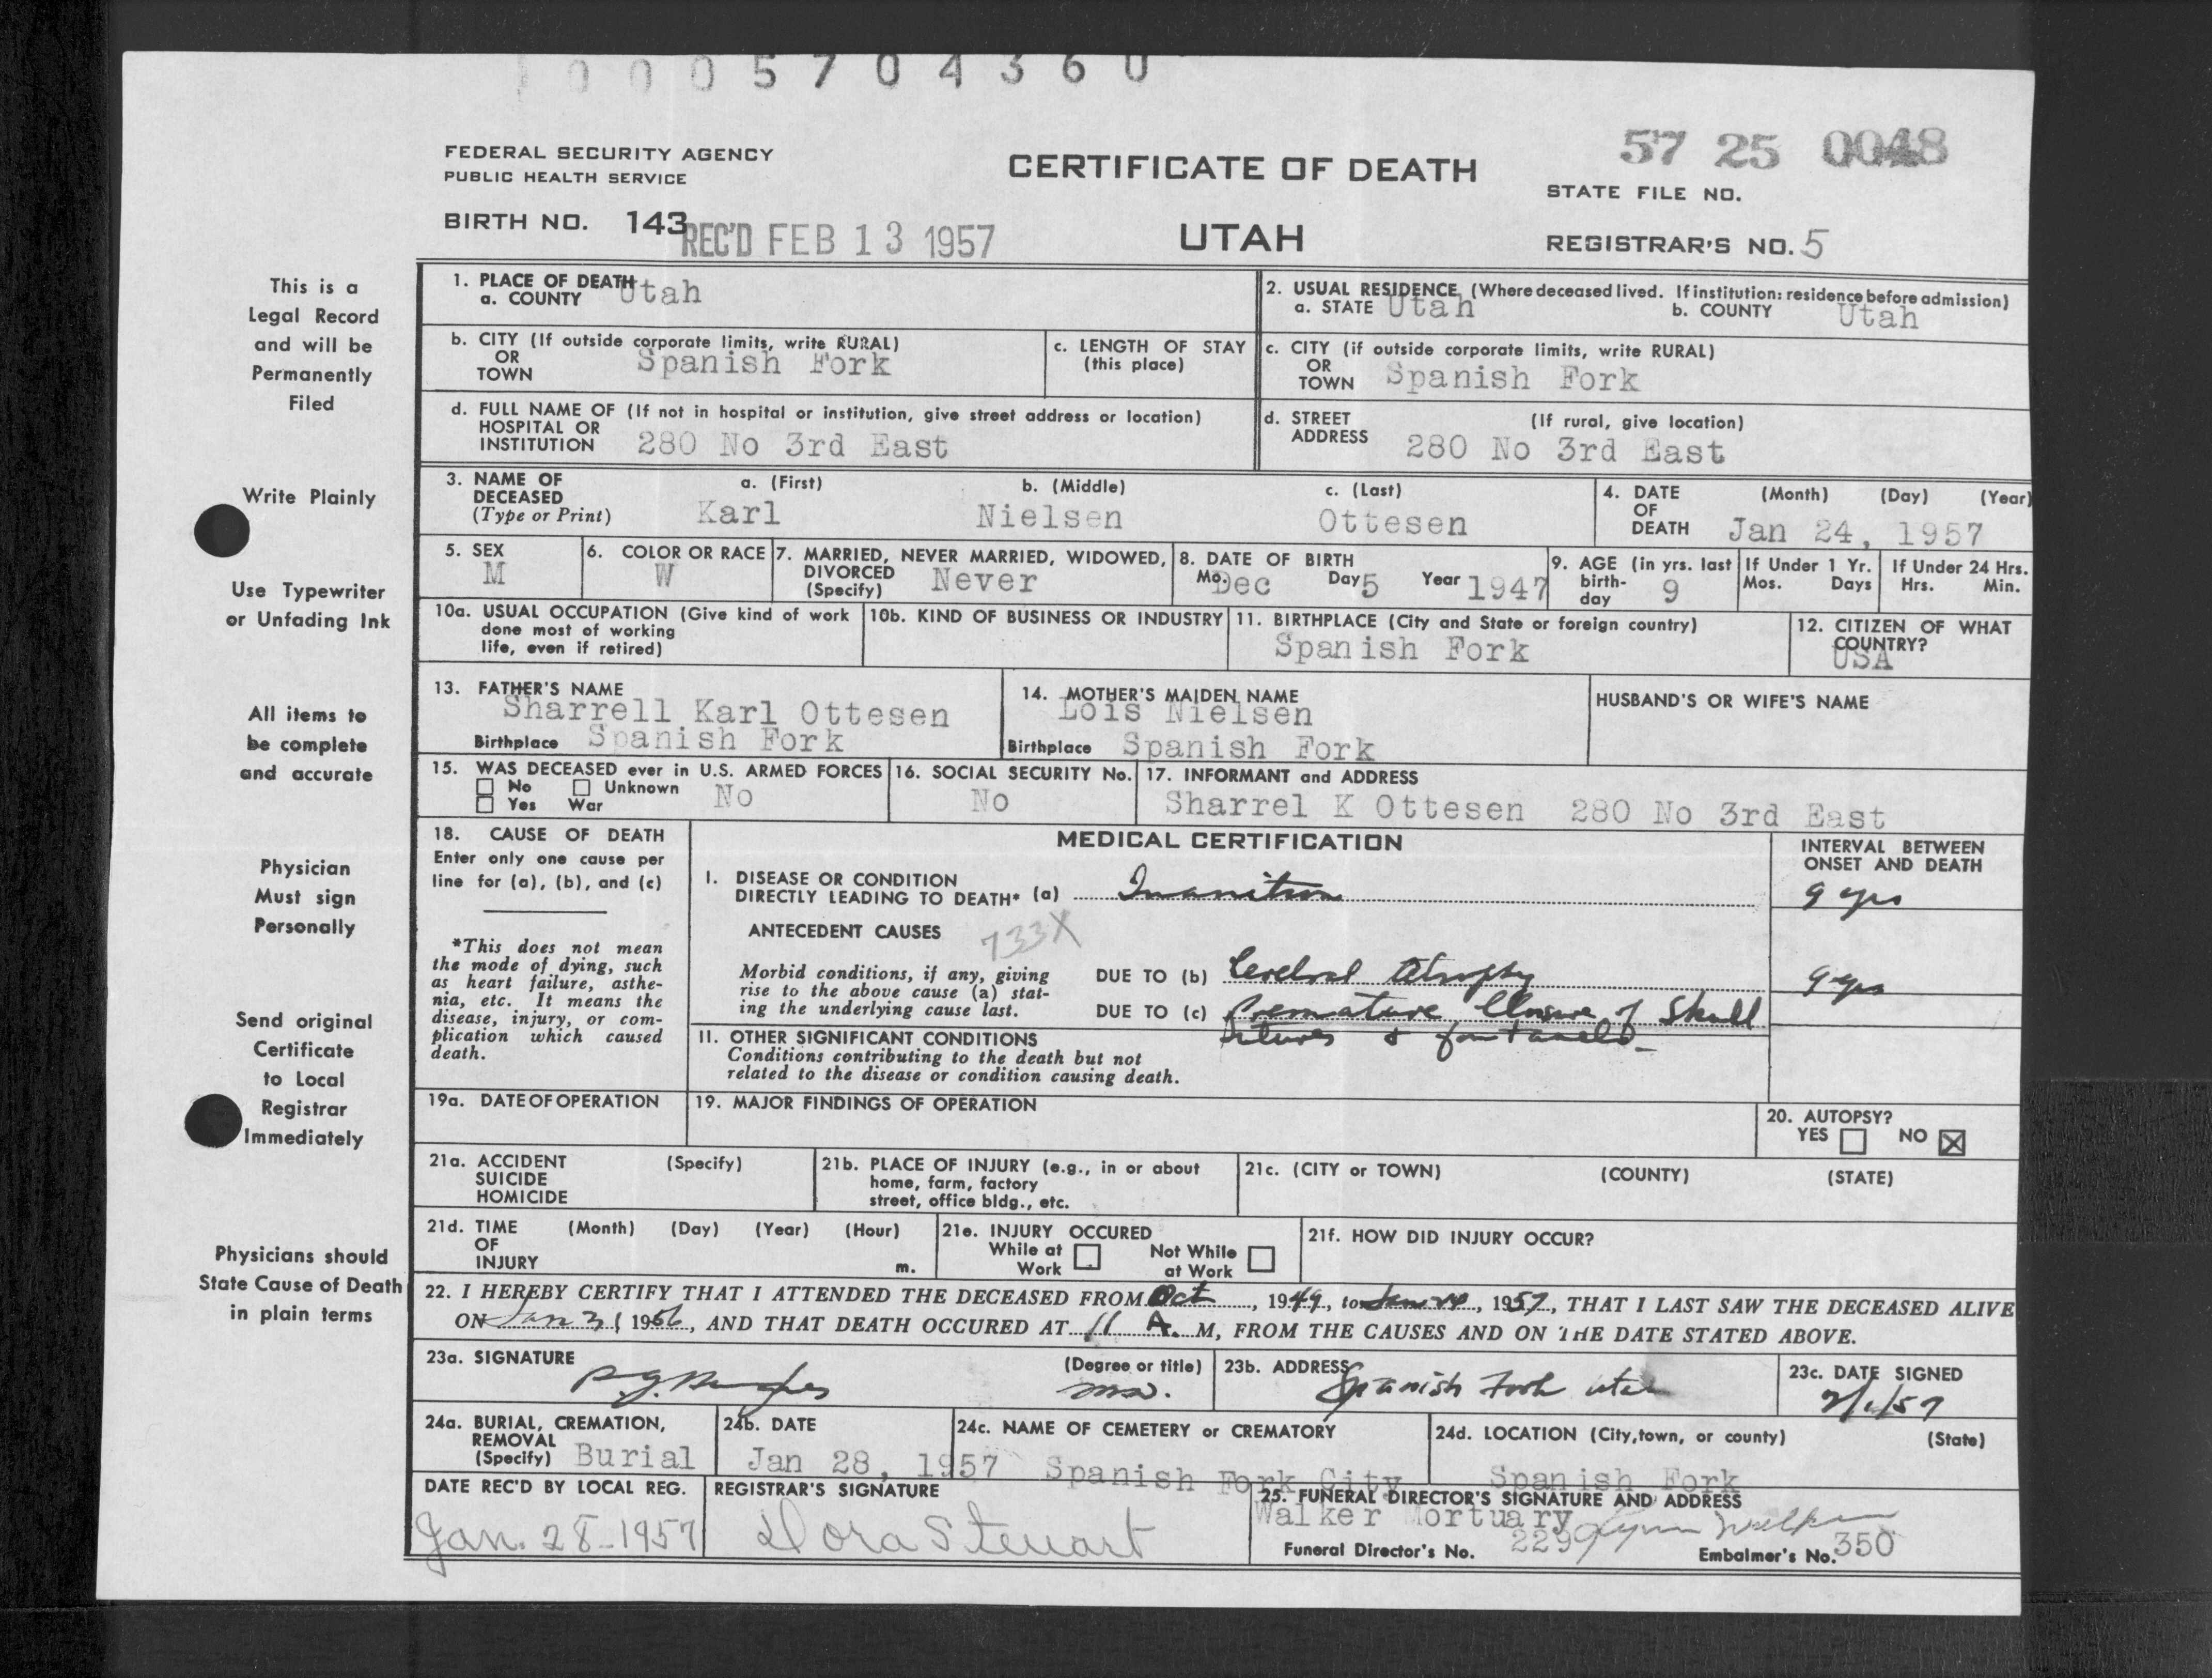 0 0 0 5 7 0 4 3 6 0
57 25 0048
FEDERAL SECURITY AGENCY
PUBLIC HEALTH SERVICE
CERTIFICATE OF DEATH
STATE FILE NO.
BIRTH NO. 143
REC'D FEB 13 1957
UTAH
REGISTRAR'S NO. 5
This is a
Legal Record
and will be
Permanently
Filed
Write Plainly
Use Typewriter
or Unfading Ink
All items to
be complete
and accurate
Physician
Must sign
Personally
Send original
Certificate
to Local
Registrar
Immediately
Physicians should
State Cause of Death
in plain terms
1. PLACE OF DEATH
a. COUNTY Utah
2. USUAL RESIDENCE (Where deceased lived. If institution: residence before admission)
a. STATE Utah b. COUNTY Utah
b. CITY (If outside corporate limits, write RURAL)
OR
TOWN Spanish Fork
c. LENGTH OF STAY
(this place)
c. CITY (if outside corporate limits, write RURAL)
OR
TOWN Spanish Fork
d. FULL NAME OF (If not in hospital or institution, give street address or location)
HOSPITAL OR
INSTITUTION 280 No 3rd East
d. STREET (If rural, give location)
ADDRESS 280 No 3rd East
3. NAME OF a. (First) b. (Middle) c. (Last)
DECEASED
(Type or Print) Karl Nielsen Ottesen
4. DATE (Month) (Day) (Year)
OF
DEATH Jan 24, 1957
5. SEX
M
6. COLOR OR RACE
W
7. MARRIED, NEVER MARRIED, WIDOWED,
DIVORCED
(Specify) Never
8. DATE OF BIRTH
Mo. Dec Day 5 Year 1947
9. AGE (in yrs. last
birth-
day 9
If Under 1 Yr.
Mos. Days
If Under 24 Hrs.
Hrs. Min.
10a. USUAL OCCUPATION (Give kind of work
done most of working
life, even if retired)
10b. KIND OF BUSINESS OR INDUSTRY
11. BIRTHPLACE (City and State or foreign country)
Spanish Fork
12. CITIZEN OF WHAT
COUNTRY?
USA
13. FATHER'S NAME
Sharrell Karl Ottesen
Birthplace Spanish Fork
14. MOTHER'S MAIDEN NAME
Lois Nielsen
Birthplace Spanish Fork
HUSBAND'S OR WIFE'S NAME
15. WAS DECEASED ever in U.S. ARMED FORCES
No Unknown
Yes War No
16. SOCIAL SECURITY No.
No
17. INFORMANT and ADDRESS
Sharrel K Ottesen 280 No 3rd East
18. CAUSE OF DEATH
Enter only one cause per
line for (a), (b), and (c)
*This does not mean
the mode of dying, such
as heart failure, asthe-
nia, etc. It means the
disease, injury, or com-
plication which caused
death.
MEDICAL CERTIFICATION
INTERVAL BETWEEN
ONSET AND DEATH
I. DISEASE OR CONDITION
DIRECTLY LEADING TO DEATH* (a) Inanition 9 yrs
ANTECEDENT CAUSES 733X
Morbid conditions, if any, giving
rise to the above cause (a) stat-
ing the underlying cause last.
DUE TO (b) Cerebral atrophy 9 yrs
DUE TO (c) Premature Closure of Skull
sutures & fontanels
II. OTHER SIGNIFICANT CONDITIONS
Conditions contributing to the death but not
related to the disease or condition causing death.
19a. DATE OF OPERATION
19. MAJOR FINDINGS OF OPERATION
20. AUTOPSY?
YES NO
21a. ACCIDENT (Specify)
SUICIDE
HOMICIDE
21b. PLACE OF INJURY (e.g., in or about
home, farm, factory
street, office bldg., etc.
21c. (CITY or TOWN) (COUNTY) (STATE)
21d. TIME (Month) (Day) (Year) (Hour)
OF
INJURY m.
21e. INJURY OCCURED
While at Not While
Work at Work
21f. HOW DID INJURY OCCUR?
22. I HEREBY CERTIFY THAT I ATTENDED THE DECEASED FROM Oct, 1949, to Jan 24, 1957, THAT I LAST SAW THE DECEASED ALIVE
ON Jan 31 1956, AND THAT DEATH OCCURED AT 11 A. M, FROM THE CAUSES AND ON THE DATE STATED ABOVE.
23a. SIGNATURE (Degree or title)
Hughes MD.
23b. ADDRESS
Spanish Fork Utah
23c. DATE SIGNED
2/1/57
24a. BURIAL, CREMATION,
REMOVAL
(Specify) Burial
24b. DATE
Jan 28, 1957
24c. NAME OF CEMETERY or CREMATORY
Spanish Fork City
24d. LOCATION (City, town, or county) (State)
Spanish Fork
DATE REC'D BY LOCAL REG.
Jan. 28-1957
REGISTRAR'S SIGNATURE
Dora Stewart
25. FUNERAL DIRECTOR'S SIGNATURE AND ADDRESS
Walker Mortuary Lynn Walker
Funeral Director's No. 229 Embalmer's No. 350